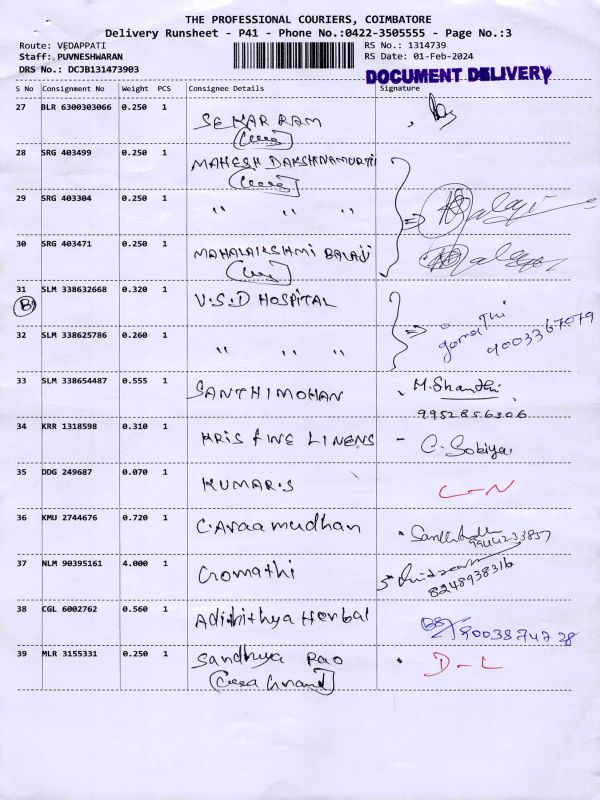 THE PROFESSIONAL COURIERS, COIMBATORE
Delivery Runsheet - P41 - Phone No.:0422-3505555 - Page No.:3
Route: VEDAPPATI RS No.: 1314739
Staff: PUVNESHWARAN RS Date: 01-Feb-2024
DRS No.: DCJB131473903 DOCUMENT DELIVERY
S No Consignment No Weight PCS Consignee Details Signature
27 BLR 6300303066 0.250 1 SEKAR RAM
28 SRG 403499 0.250 1 MAHESH DAKSHINAMURTHI
29 SRG 403304 0.250 1 " " " Balaji
30 SRG 403471 0.250 1 MAHALAKSHMI BALAJI
31 SLM 338632668 0.320 1 V.S.D HOSPITAL
B gomathi 9003367079
32 SLM 338625786 0.260 1 " " "
33 SLM 338654487 0.555 1 SANTHIMOHAN M. Shanthi
9952856306
34 KRR 1318598 0.310 1 KRIS FINE LINENS - C. Sobiya
35 DDG 249687 0.070 1 KUMAR.S L-N
36 KMU 2744676 0.720 1 C.Avaamudhan
9944233857
37 NLM 90395161 4.000 1 Gomathi
8248938316
38 CGL 6002762 0.560 1 Adihithya Herbal
9003874728
39 MLR 3155331 0.250 1 Sandhya Rao D-L